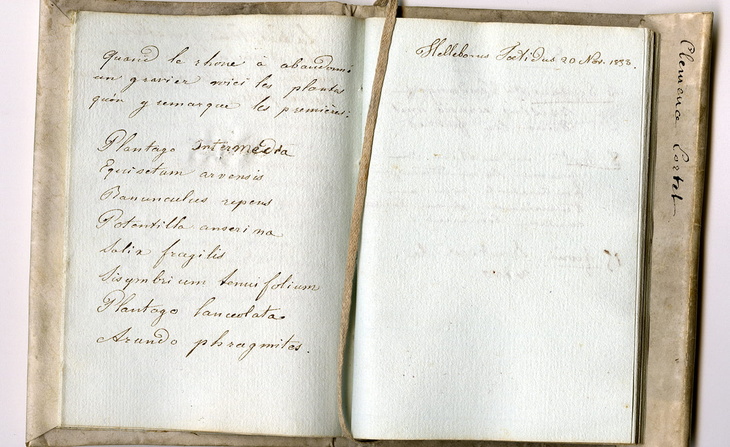 quand le rhone à abandonné
un gravier voici les plantes
qu'on y remarque les premières:
Plantago intermedia
Equisetum arvensis
Ranunculus repens
Potentilla anserina
Salix fragilis
Sisymbrium tenuifolium
Plantago lanceolata
Arundo phragmites.
Helleborus Foetidus 20 Nov. 1838.
Clemence Lortet